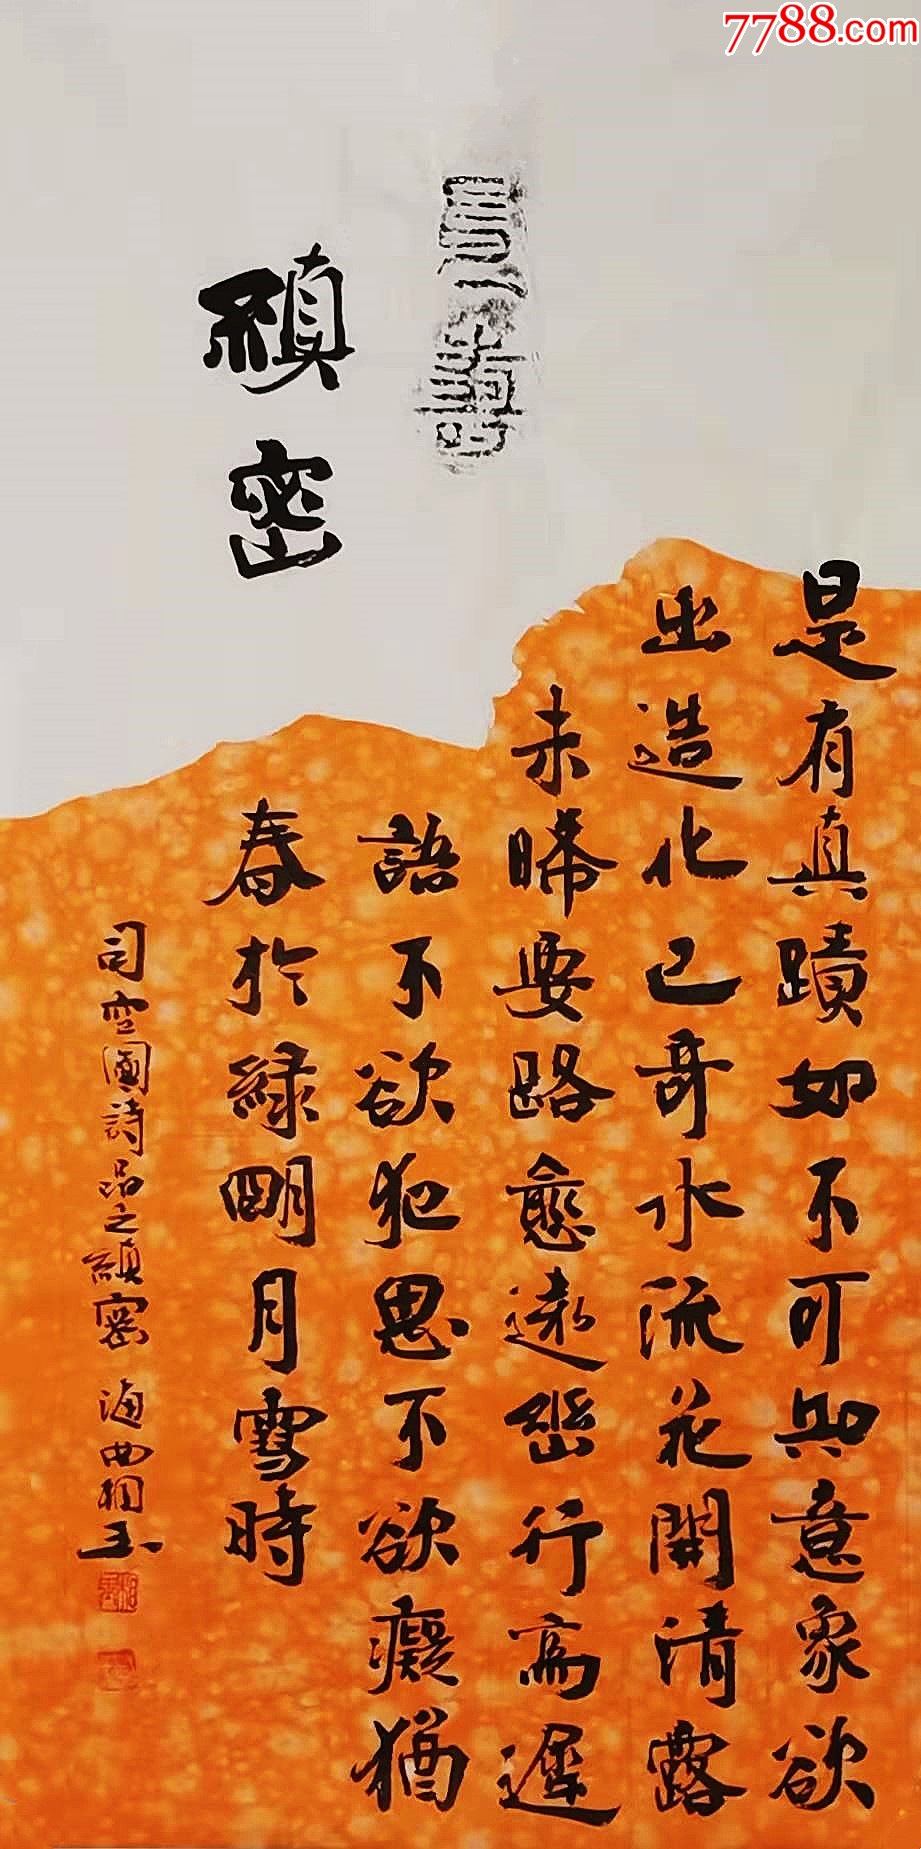 7788.com
縝密
是有真蹟如不可與意象欲
出造化已奇水流花開清露
未晞要路愈遠幽行為遲
語不欲犯思不欲癡猶
春於綠明月雪時
司空圖詩品之縝密 海曲